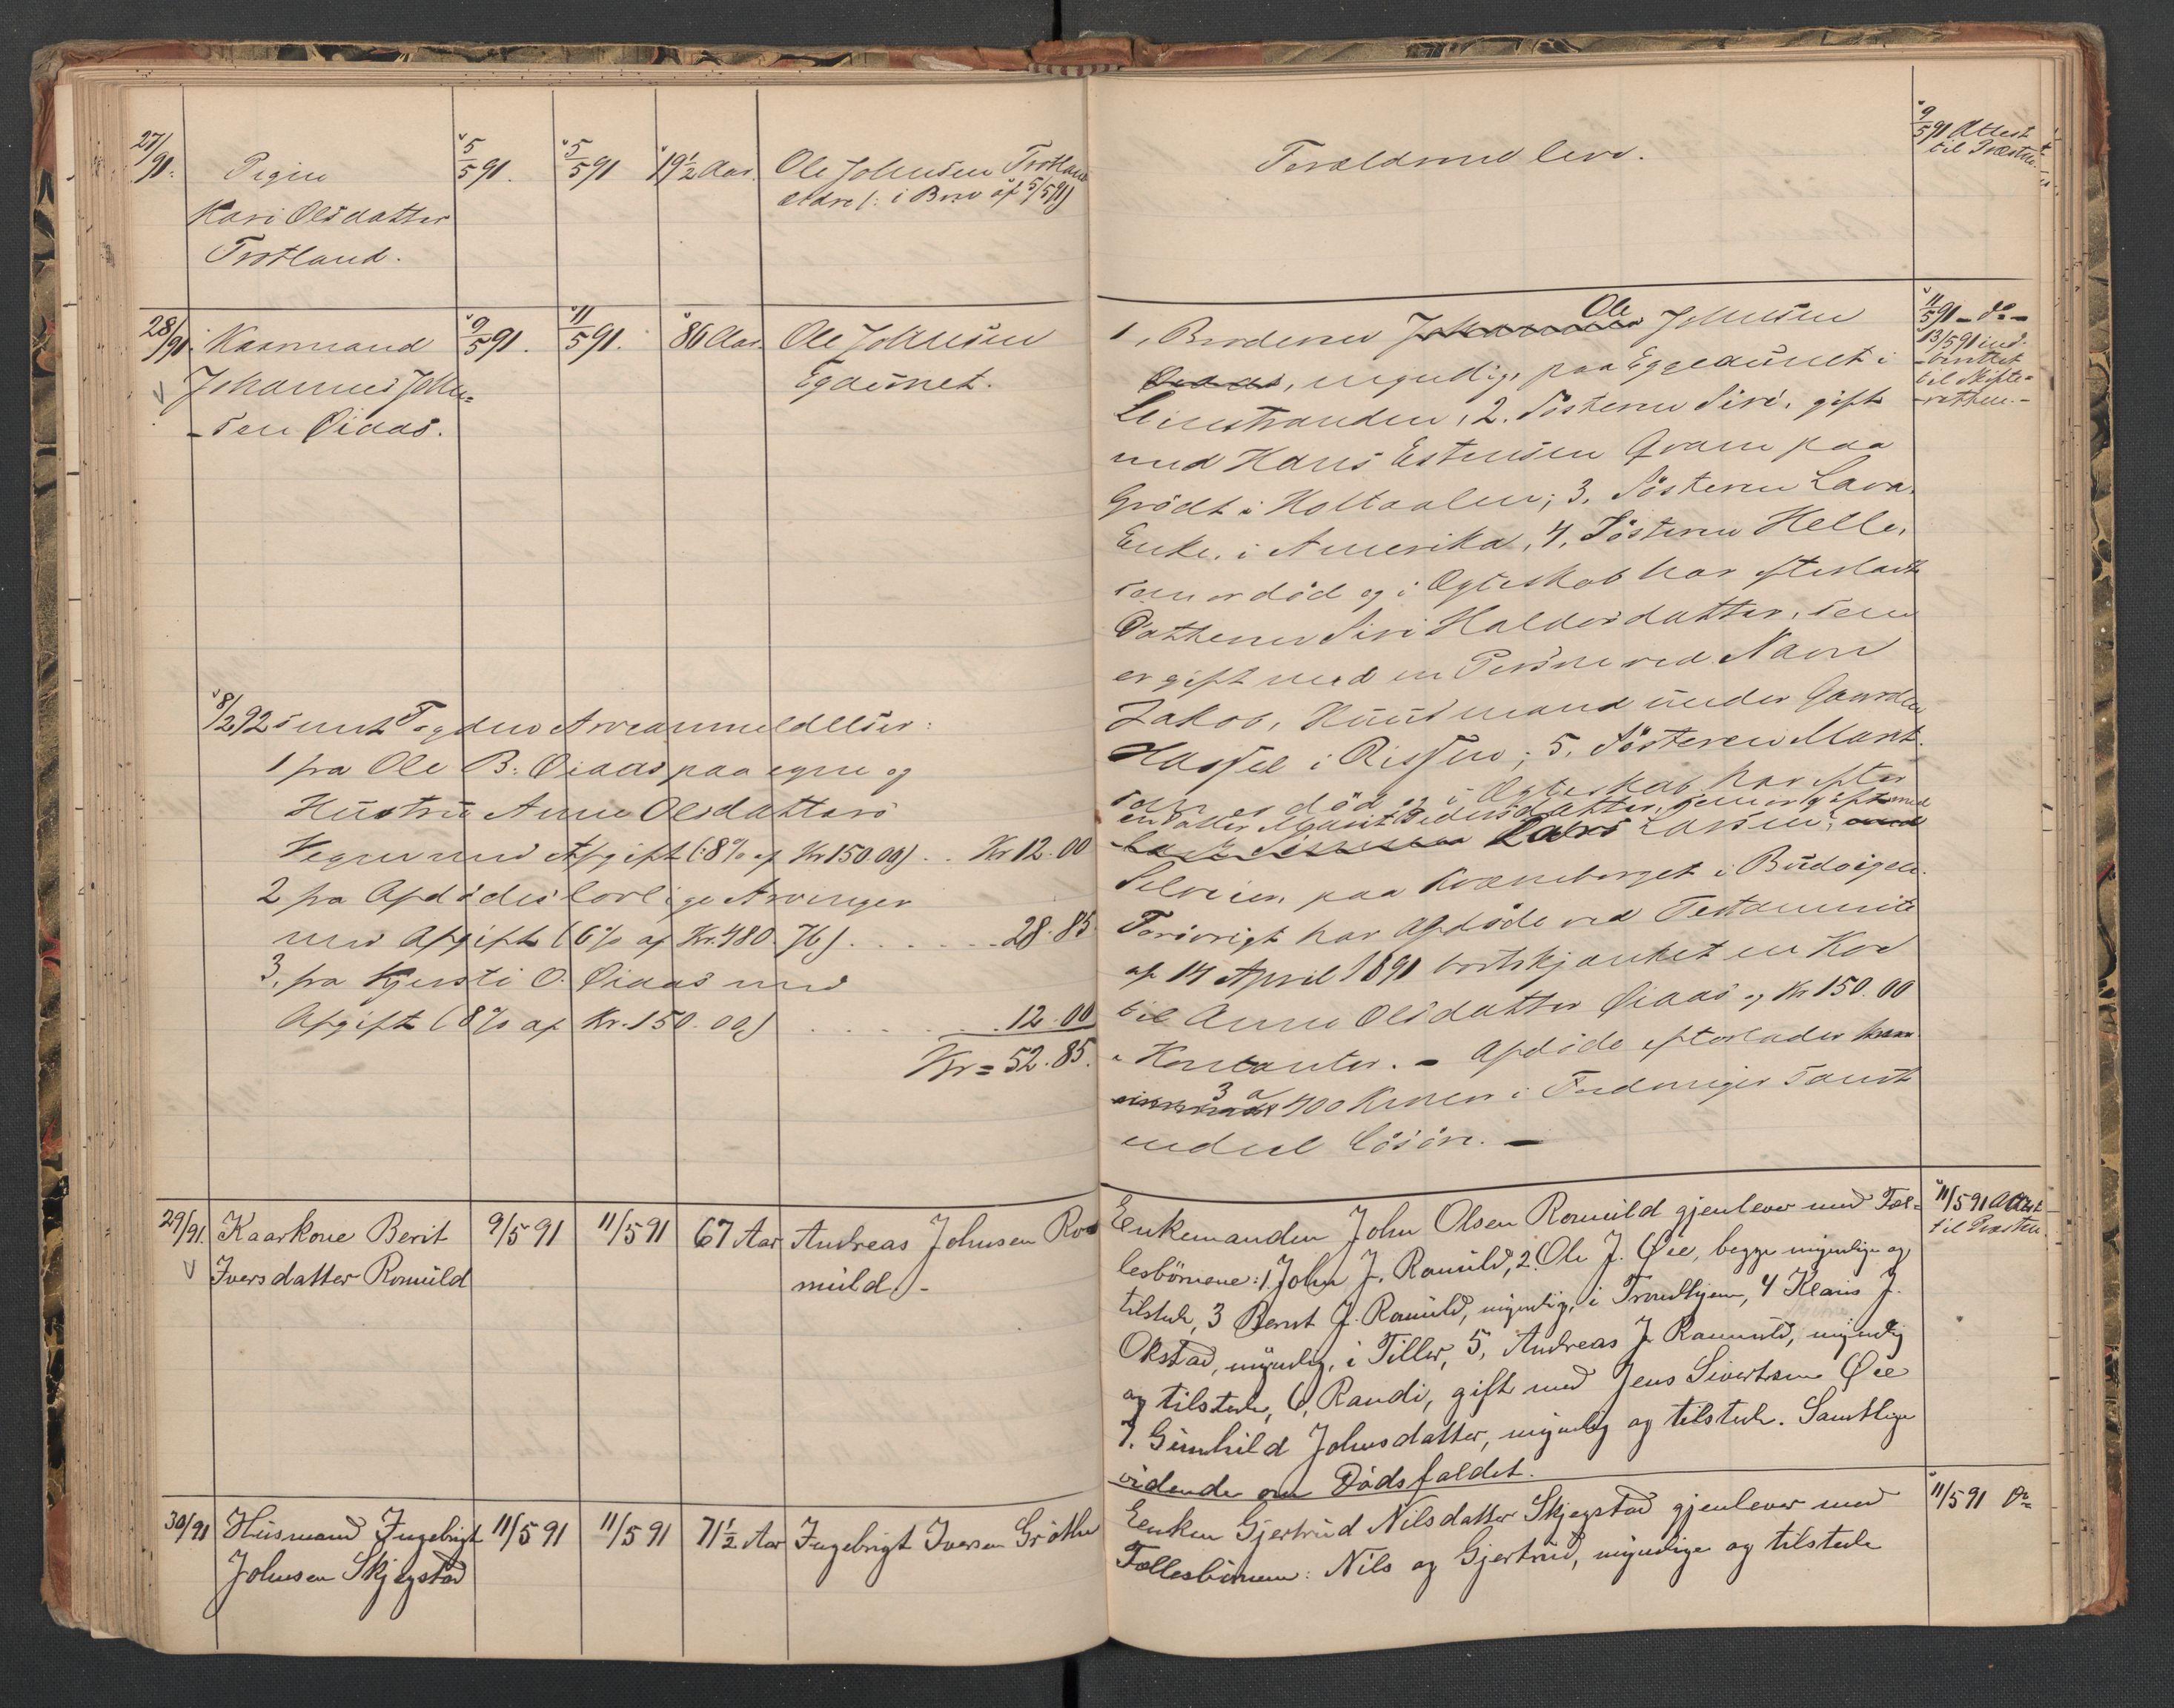 27/91. Pigen
Kari Olsdatter
Trotland.
5/5 91.
5/5 91
19½ Aar.
Ole Johnsen Trotland
ældre (: i Brev af 5/5 91)
Forældrene leve.
9/5 91 Attest
til Præsten.
28/91. Kaarmand
Johannes John=
-sen Øiaas.
9/5 91.
11/5 91.
86 Aar.
Ole Johnsen
Egaunet.
8/2 92 sendt Fogden Arveanmeldelser:
1 fra Ole B. Øiaas paa egne og
Hustru Anne Olsdatters
Vegne med Afgift (8% af Kr 150.00) . . Kr 12.00
2 fra Afdødes lovlige Arvinger
med Afgift (6% af Kr. 480.76) . . . . . . 28.85
3, fra Kjersti O. Øiaas med
Afgift (8% af Kr. 150.00) . . . . . . 12.00
Kr = 52.85.
1, Broderen Ole Johnsen
Øiaas, myndig, paa Eggeaunet i
Leinstranden, 2. Søsteren Siri, gift
med Hans Estensen Qvam paa
Grødt i Holtaalen; 3. Søsteren Lava.
Enke, i Amerika, 4, Søsteren Helle,
som er død og i Ægteskab har efterladt
Datteren Siri Haldorsdatter, som
er gift med en Person ved Navn
Jakob, Huusmand under Gaarden
Hassel i Rissen; 5. Søsteren Marit
som er død og i Ægteskab har efter
en Datter Marit Pedersdatter, som er gift med
Lars Larsen,
Selveier, paa Kvæneberget i Budvigen.
Forøvrigt har Afdøde ved Testamente
af 14 April 1891 bortskjænket en Ko
til Anne Olsdatter Øiaas og Kr 150.00
i Kontanter. - Afdøde efterlader
3 a 400 Kroner i Fordringer samt
endel Løsøre. -
11/5 91 - do -
13/5 91 ind-
-berettet
til Skifte=
-retten. -
29/91. Kaarkone Berit
Iversdatter Romuld
9/5 91
11/5 91
67 Aar
Andreas Johnsen Ro=
muld. -
Enkemanden John Olsen Romuld gjenlever med Fæl=
lesbørnene: 1. John J. Romuld, 2. Ole J. Øie, begge myndige og
tilstede, 3 Bernt J. Romuld, myndig, i Trondhjem, 4 Klaus J.
Okstad, myndig, i Tiller, 5, Andreas J. Romuld, myndig
og tilstede, 6, Randi, gift med Jens Sivertsen Øie
7. Gunhild Johnsdatter, myndig og tilstede. Samtlige
vidende om Dødsfaldet.
11/5 91 Attest
til Præsten.
30/91 Husmand Ingebrigt
Johnsen Skjegstad
11/5 91
11/5 91
71½ Aar
Ingebrigt Iversen Grøthe
Enken Gjertrud Nilsdatter Skjegstad gjenlever med
Fællesbørnene: Nils og Gjertrud, myndige og tilstede
11/5 91 Do